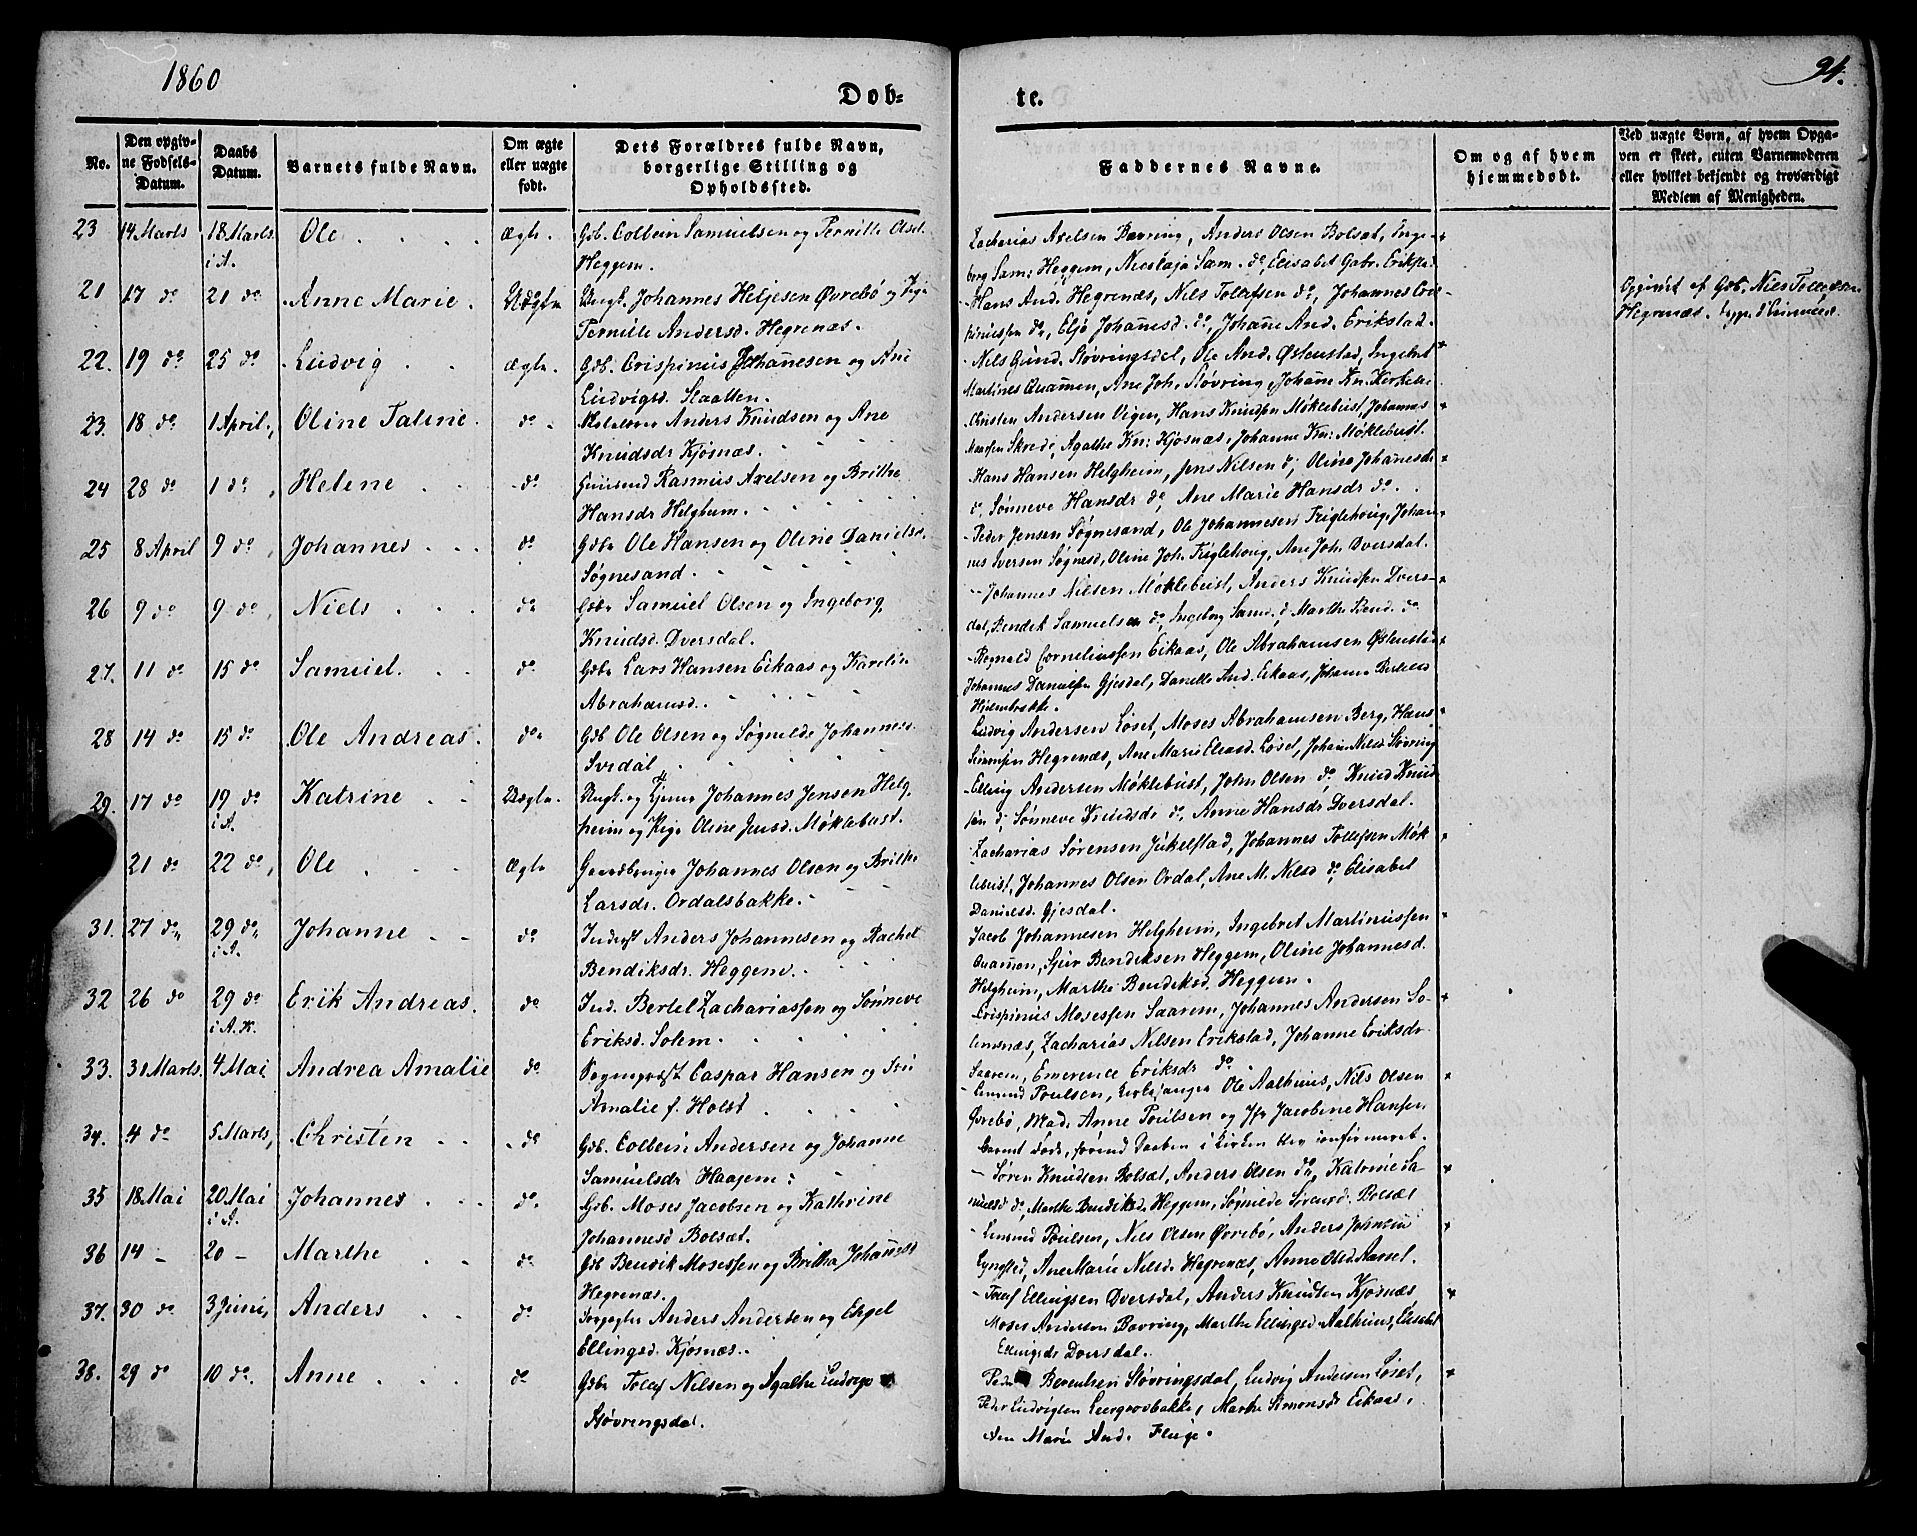 1860
Dob=
te.
91.
No.
Den opgiv-
ne Fødsels-
Datum.
Daabs
Datum.
Barnets fulde Navn.
Om ægte
eller uægte
født.
Dets Forældres fulde Navn,
borgerlige Stilling og
Opholdssted.
Faddernes Navne.
Om og af hvem
hjemmedøbt.
Ved uægte Børn, af hvem Opga-
ven er skeet, enten Barnemoderen
eller hvilket bekjendt og troværdigt
Medlem af Menigheden.
23 14 Marts 18 Marts i A. Ole Ægte Gdb. Colbein Samuelsen og Pernille Olsd.
Heggem.
Zacharias Axelsen Bøvring, Anders Olsen Bolsæt, Inge-
borg Sam: Heggem, Nicolaja Sam. do, Elisabet Gabr. Erikstad
21 17 do 21 do Anne Marie. Uægte Ungk. Johannes Heljesen Øvrebø og Pige
Pernille Andersd. Hegrenæs.
Hans And. Hegrenæs, Nils Tollefsen do, Johannes
do, Eljo Johanesd. do, Johane And. Erikstad.
Opgivet af Gdb. Niels Tollefsen
Hegrenæs.
22. 19 do 25 do Ludvig Ægte Gdb. Crispinus Johannesen og Ane
Ludvigsd. Slaatten.
Nils Gund. Støvringsdal, Ole And. Østenstad, Ingebret
Martines Quamen, Ane Joh. Støvring, Johane Kn.
23. 18 do 1 April. Oline Taline. do Anders Knudsen og Ane
Knudsdr Kjøsnæs.
Christen Andersen Vigen, Hans Knudsen Møklebust, Johannes
Skrede, Agathe Kn: Kjøsnæs, Johanne Kn: Møklebust.
24 28 do 1 do Helene do Huusmd Rasmus Axelsen og Brithe
Hansdr Helgheim.
Hans Hansen Helgheim, Jens Nilsen do, Oline Johanesdr
do, Sønneve Hansdr do, Ane Marie Hansdr do.
25 8 April 9 do Johannes do Gdbr Ole Hansen og Oline Danielsd.
Søgnesand.
Peder Jensen Søgnesand, Ole Johannesen Fuglehoug, Johan-
nes Iversen Søgnesd, Oline Joh. Fuglehoug, Ane Joh. Dversdal.
26 9 do 9 do Niels do Gdbr Samuel Olsen og Ingeborg
Knudsd. Dversdal.
Johannes Nilsen Møklebust, Anders Knudsen Dvers-
dal, Bendik Samuelsen do, Ingeborg Samd. do, Marthe Bend. do
27. 11 do 15 do Samuel. do Gdbr Lars Hansen Eikaas og Karelin
Abrahamsd.
Regnald Corneliussen Eikaas, Ole Abrahamsen Østenstad
Johannes Danielsen Gjesdal, Danelle And. Eikaas, Johanne
28 14 do 15 do Ole Andreas. do Gdb Ole Olsen og Søgnilde Johannesd.
Svidal
Ludvig Andersen Løset, Moses Abrahamsen Berg, Hans
Simonsen Hegrenæs, Ane Marie Eliasd. Løset, Johane Nilsd Støvring
29. 17 do 19 do i A. Katrine Uægte. Ungk. og Tjener Johannes Jensen Helg-
heim og Pige Oline Jensd. Møklebust.
Elling Andersen Møklebust, John Olsen do, Knud Knud-
sen do, Sønneve Knudsdr do, Anne Hansdr Dversdal.
21 do 22 do Ole Ægte Gaardbruger Johannes Olsen og Brithe
Larsdr. Ordalsbakke.
Zacharias Sørensen Jukelstad, Johannes Tollefsen Møk-
lebust, Johannes Olsen Ordal, Ane M. Nilsd do, Elisabet
Danielsd. Gjesdal.
31. 27 do 29 do i A. Johanne do Inderst Anders Johannesen og Rachel
Bendiksdr. Heggem.
Jacob Johannesen Helgheim, Ingebret Martinussen
Quamen, Sjur Bendiksen Heggem, Oline Johannesd.
Helgheim, Marthe Bendiksd. Heggem.
32 26 do 29 do i A. K. Erik Andreas. do Ind. Bertel Zachariassen og Sønneve
Eriksd. Solem.
Crispinus Mosessen Saarem, Johannes Andersen So-
Zacharias Nilsen Erikstad, Johanne Eriksdr
Saarem, Emerence Eriksdr do.
33. 31 Marts. 4 Mai Andrea Amalie do Sogneprest Caspar Hansen og Fru
Amalie f. Holst
Poulsen, Kirkesanger Ole Aalhuus, Nils Olsen
Øvrebø, Mad. Anne Poulsen og Jfr Jacobine Hansen.
34. 4 do 5 Marts, Christen do Gdb. Colbein Andersen og Johanne
Samuelsdr Haagem.
Søren Knudsen Bolsæt, Anders Olsen do, Katrine Sa-
muelsd do, Marthe Bendiksd. Heggem, Søgnede Sørensd. Bolsæt
35 18 Mai 20 Mai i A. Johannes do. Gdb. Moses Jacobsen og Kathrine
Johannesd Bolsæt.
Poulsen, Nils Olsen Øvrebø, Anders Johnsen
Lyngsted, Ane Marie Nilsd. Hegrenæs, Anne Olsd. Aarset.
36 14 - 20 - Marthe do Gdb Bendik Mosessen og Brithe Johanesd
Hegrenæs.
Josef Ellingsen Dversdal, Anders Knudsen Kjøsnæs
Moses Andersen Bøvring, Marthe Ellingsd Aalhuus, Elisabet
Ellingsdr Dversdal.
37. 30 do 3 Juni, Anders do Anders Andersen og Engel
Ellingsd. Kjøsnæs.
38. 29 do 10 do. Anne do Gdbr Tollef Nilsen og Agathe Ludvigs
Støvringsdal.
Berentsen Støvringsdal, Ludvig Andersen Løset,
Peder Ludvigsen Leergrovbakke, Marthe Simonsdr Eikaas,
Ane Marie And. Fluge.